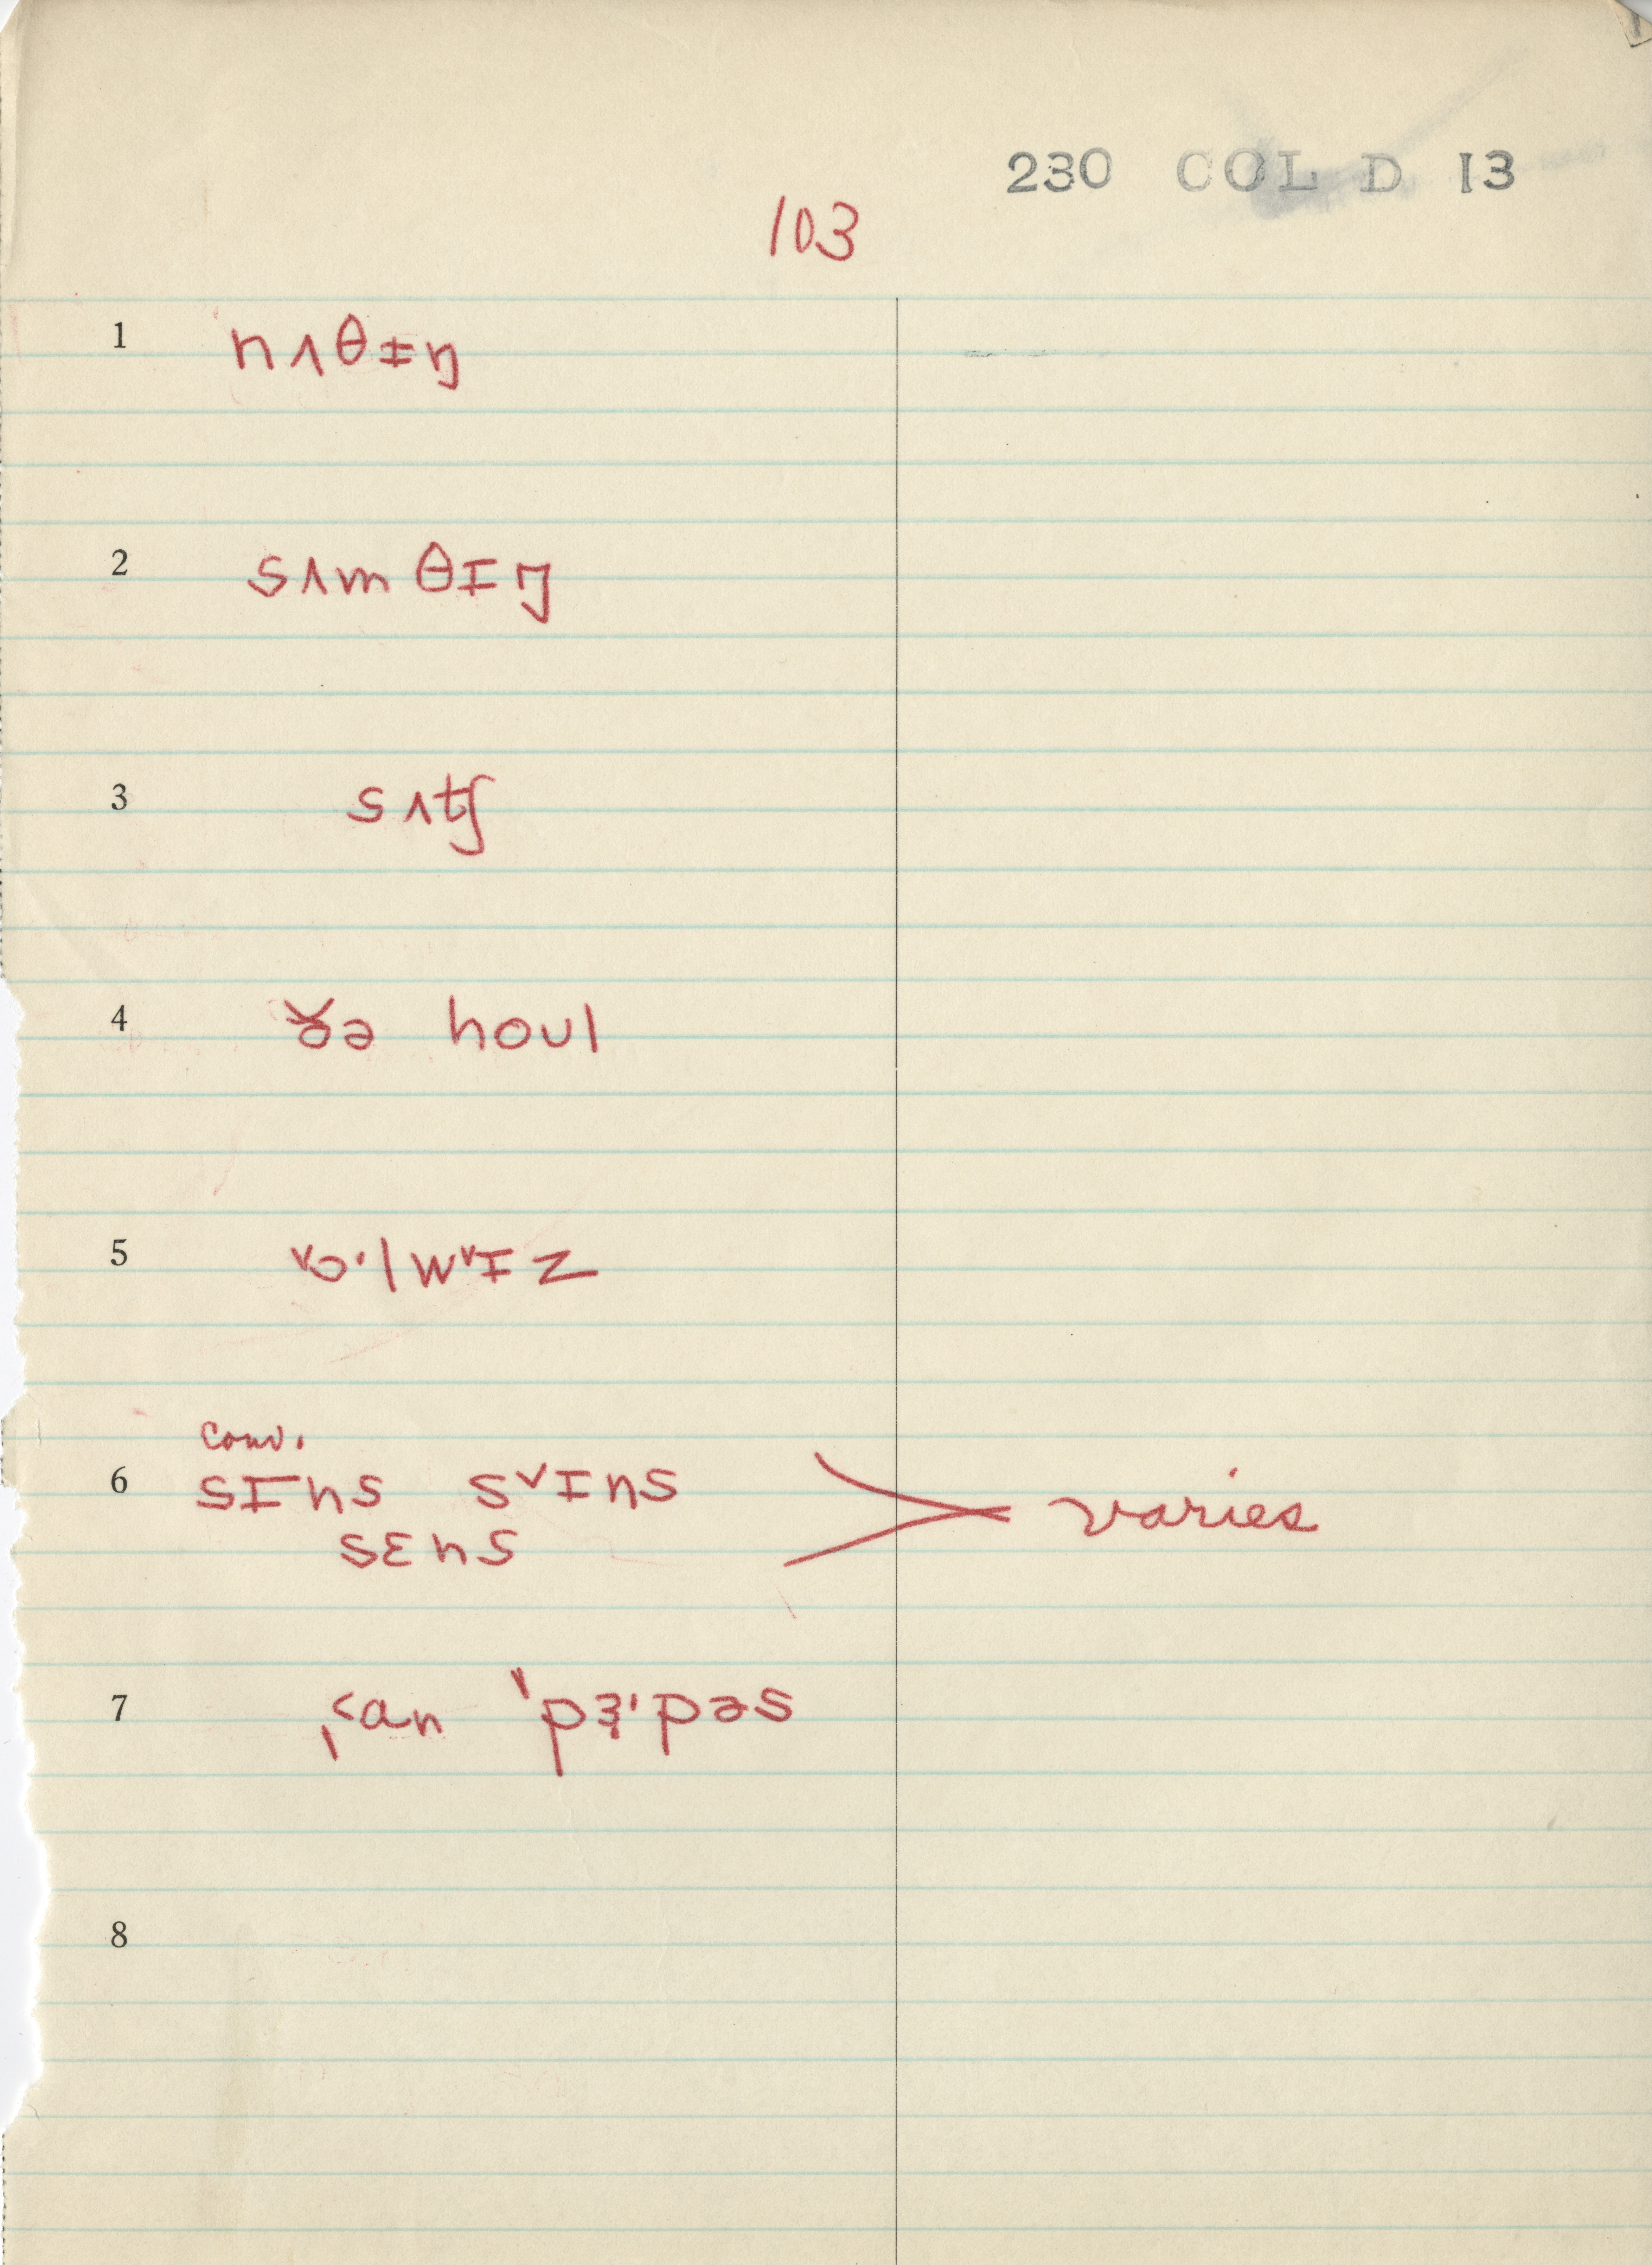 230 COL D 13
103
1 nʌθɪŋ
2 sʌm θɪŋ
3 sʌtʃ
4 ðə houl
5 ˅ɔ·lw˅ɪz
conv.
6 sɪns s˅ɪns varies
sɛns
7 ˌ˂an ˈpɝ·pəs
8